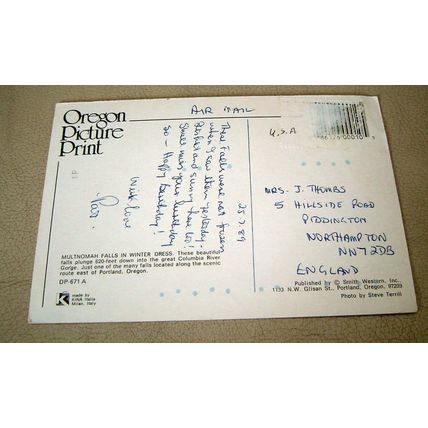 Oregon
Picture
Print
AIR MAIL
U.S.A
25.7.89
These Falls were not frozen
when I saw them yesterday!
Perfect and sunny here too!
Shall miss your birthday
so - Happy Birthday!
With love
MRS. J. THOMBS
5 HILLSIDE ROAD
PIDDINGTON
NORTHAMPTON
NN7 2DB
ENGLAND
MULTNOMAH FALLS IN WINTER DRESS. These beautiful
falls plunge 620-feet down into the great Columbia River
Gorge. Just one of the many falls located along the scenic
route east of Portland, Oregon.
DP-671 A
K
made by
KINA Italia
Milan, Italy
Published by © Smith-Western, Inc.
1133 N.W. Glisan St., Portland, Oregon, 97209
Photo by Steve Terrill